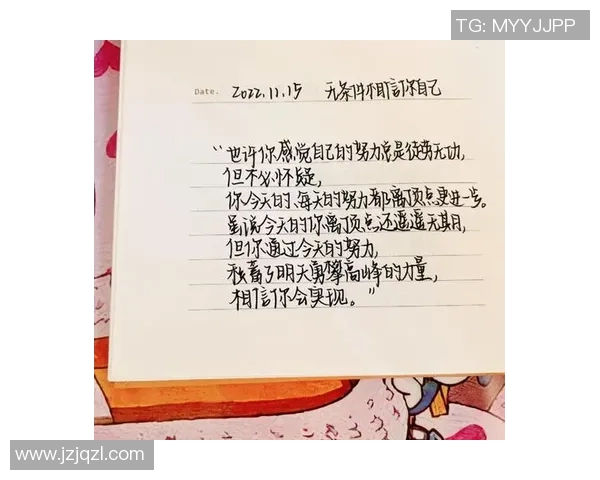 TG: MYYJJPP
Date. 2022.11.15 无条件相信你自己
“也许你感觉自己的努力总是徒劳无功，
但不必怀疑，
你今天的、每天的努力都离顶点更进一步。
虽说今天的你离顶点还遥遥无期，
但你通过今天的努力，
积蓄了明天勇攀高峰的力量，
相信你会实现。”
www.jzjqzl.com